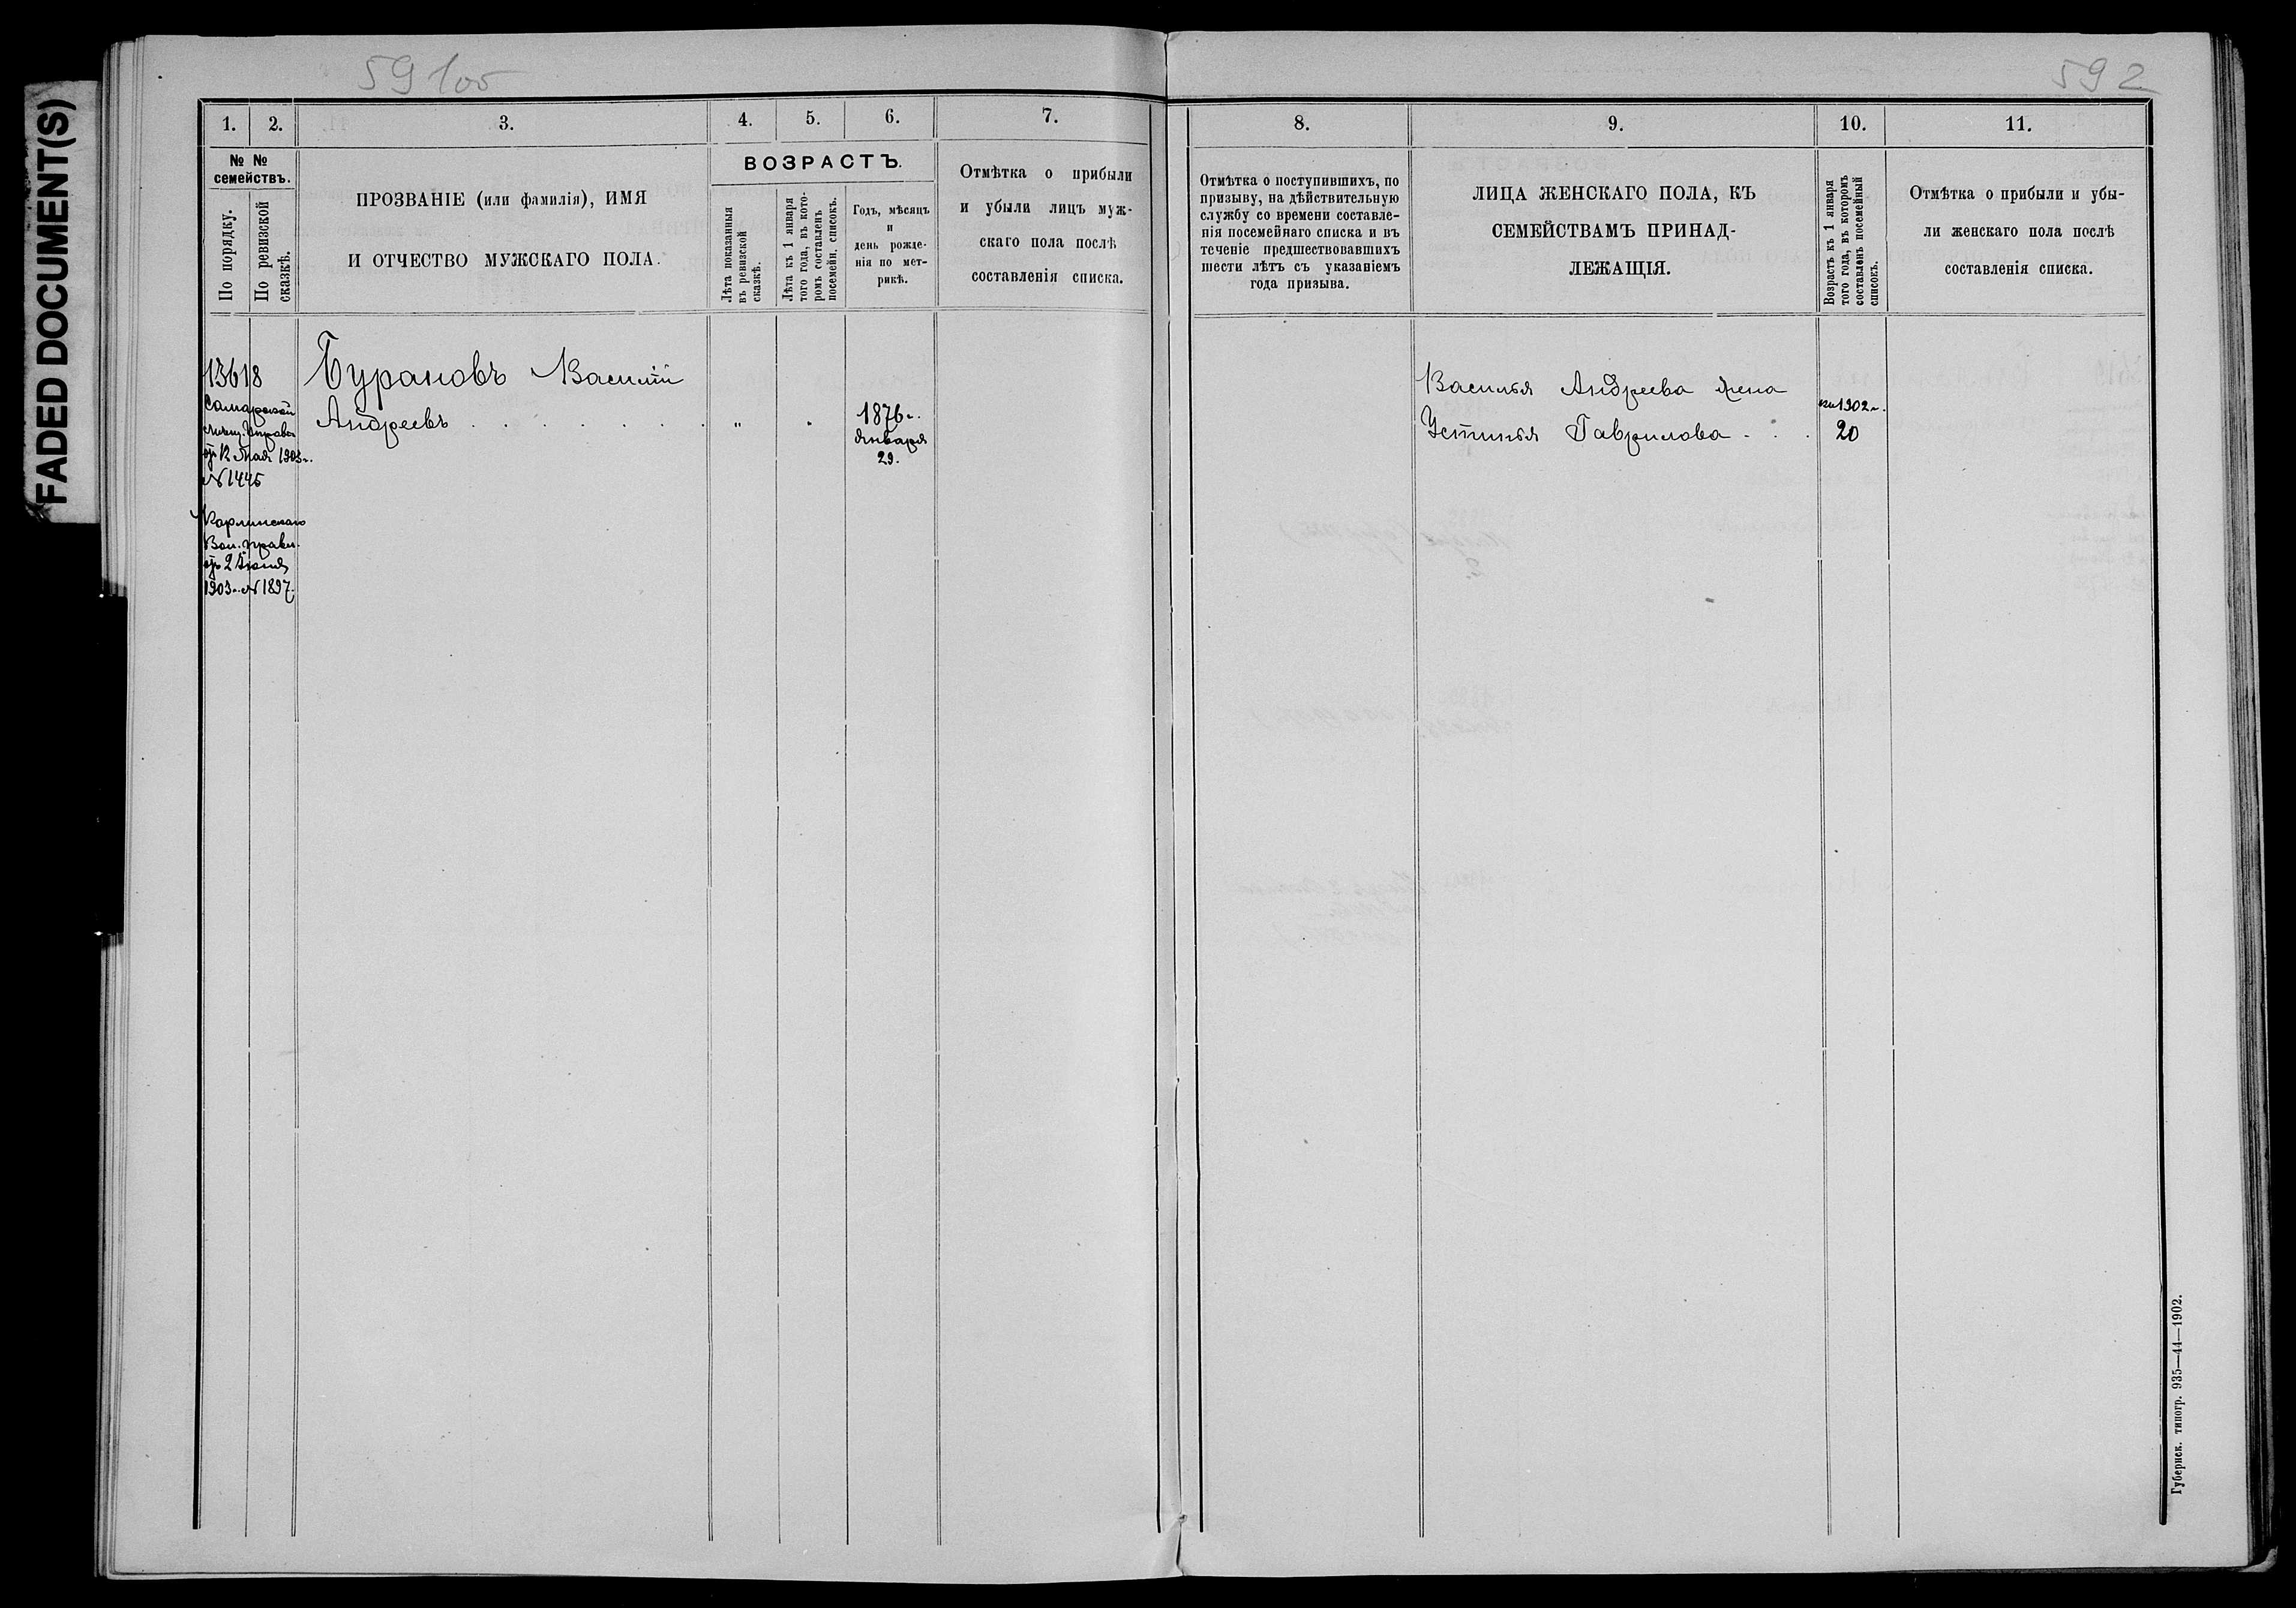 FADED DOCUMENT(S)
591об
592
1. 2. 3. 4. 5. 6. 7. 8. 9. 10. 11.
№ №
семействъ.
По порядку.
По ревизской
сказкѣ.
ПРОЗВАНІЕ (или фамилія), ИМЯ
И ОТЧЕСТВО МУЖСКАГО ПОЛА.
ВОЗРАСТЪ.
Лѣта показанныя
въ ревизской
сказкѣ.
Лѣта къ 1 января
того года, въ кото-
ромъ составленъ
посемейн. списокъ.
Годъ, мѣсяцъ
и
день рожде-
нія по мет-
рикѣ.
Отмѣтка о прибыли
и убыли лицъ муж-
скаго пола послѣ
составленія списка.
Отмѣтка о поступившихъ, по
призыву, на дѣйствительную
службу со времени составле-
нія посемейнаго списка и въ
теченіе предшествовавшихъ
шести лѣтъ съ указаніемъ
года призыва.
ЛИЦА ЖЕНСКАГО ПОЛА, КЪ
СЕМЕЙСТВАМЪ ПРИНАД-
ЛЕЖАЩІЯ.
Возрастъ къ 1 января
того года, въ которомъ
составленъ посемейный
списокъ.
Отмѣтка о прибыли и убы-
ли женскаго пола послѣ
составленія списка.
13618
Самарской
Мѣщ. Управы
от 12 Мая 1903 г.
№ 1445
Карлинскаго
Вол. правл.
от 2 Іюня
1903 г. № 1897.
Бурановъ Василій
Андреевъ . . . . . . .
"
1876 г.
Января
29.
Василья Андреева жена
Устинья Гаврилова . . .
на 1902 г.
20
Губернск. типогр. 935—44—1902.